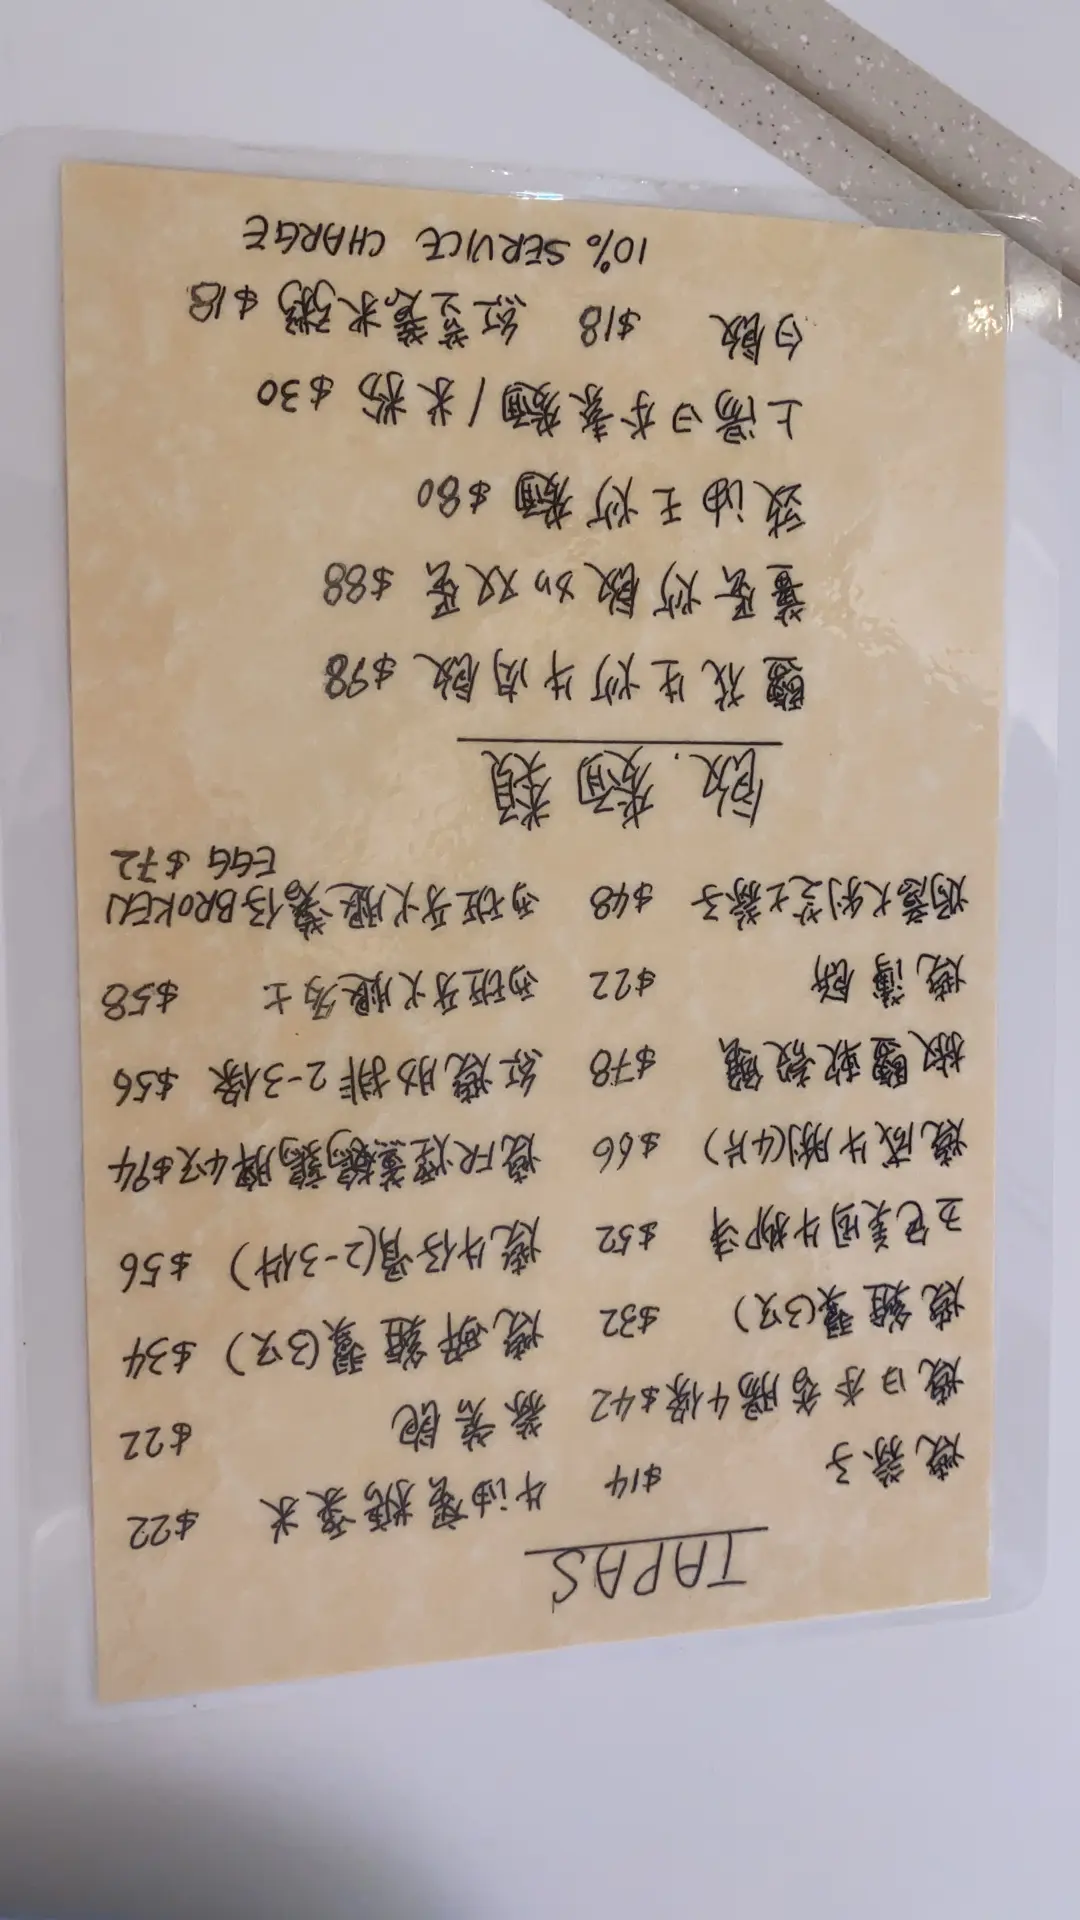 TAPAS
燒蒜子 $14 牛油蜜糖粟米 $22
燒日本香腸4條 $42 蒜茸飽 $22
燒雞翼(3只) $32 燒醉雞翼(3只) $34
五色美国牛柳串 $52 燒牛仔骨(2-3件) $56
燒咸牛脷(4片) $66 燒FR煙薰鵪鶉髀4只$94
椒鹽軟殼蟹 $78 紅燒肋排2-3條 $56
燒薄餅 $22 西班牙火腿多士 $58
焗意大利芝士蒜子 $48 西班牙火腿薯仔BROKEN
EGG $72
飯.麵類
鹽放生炒牛肉飯 $98
薑蛋炒飯加双蛋 $88
豉油王炒麵 $80
上湯日本素麵/米粉 $30
白飯 $18 紅荳薏米粥 $18
10% SERVICE CHARGE